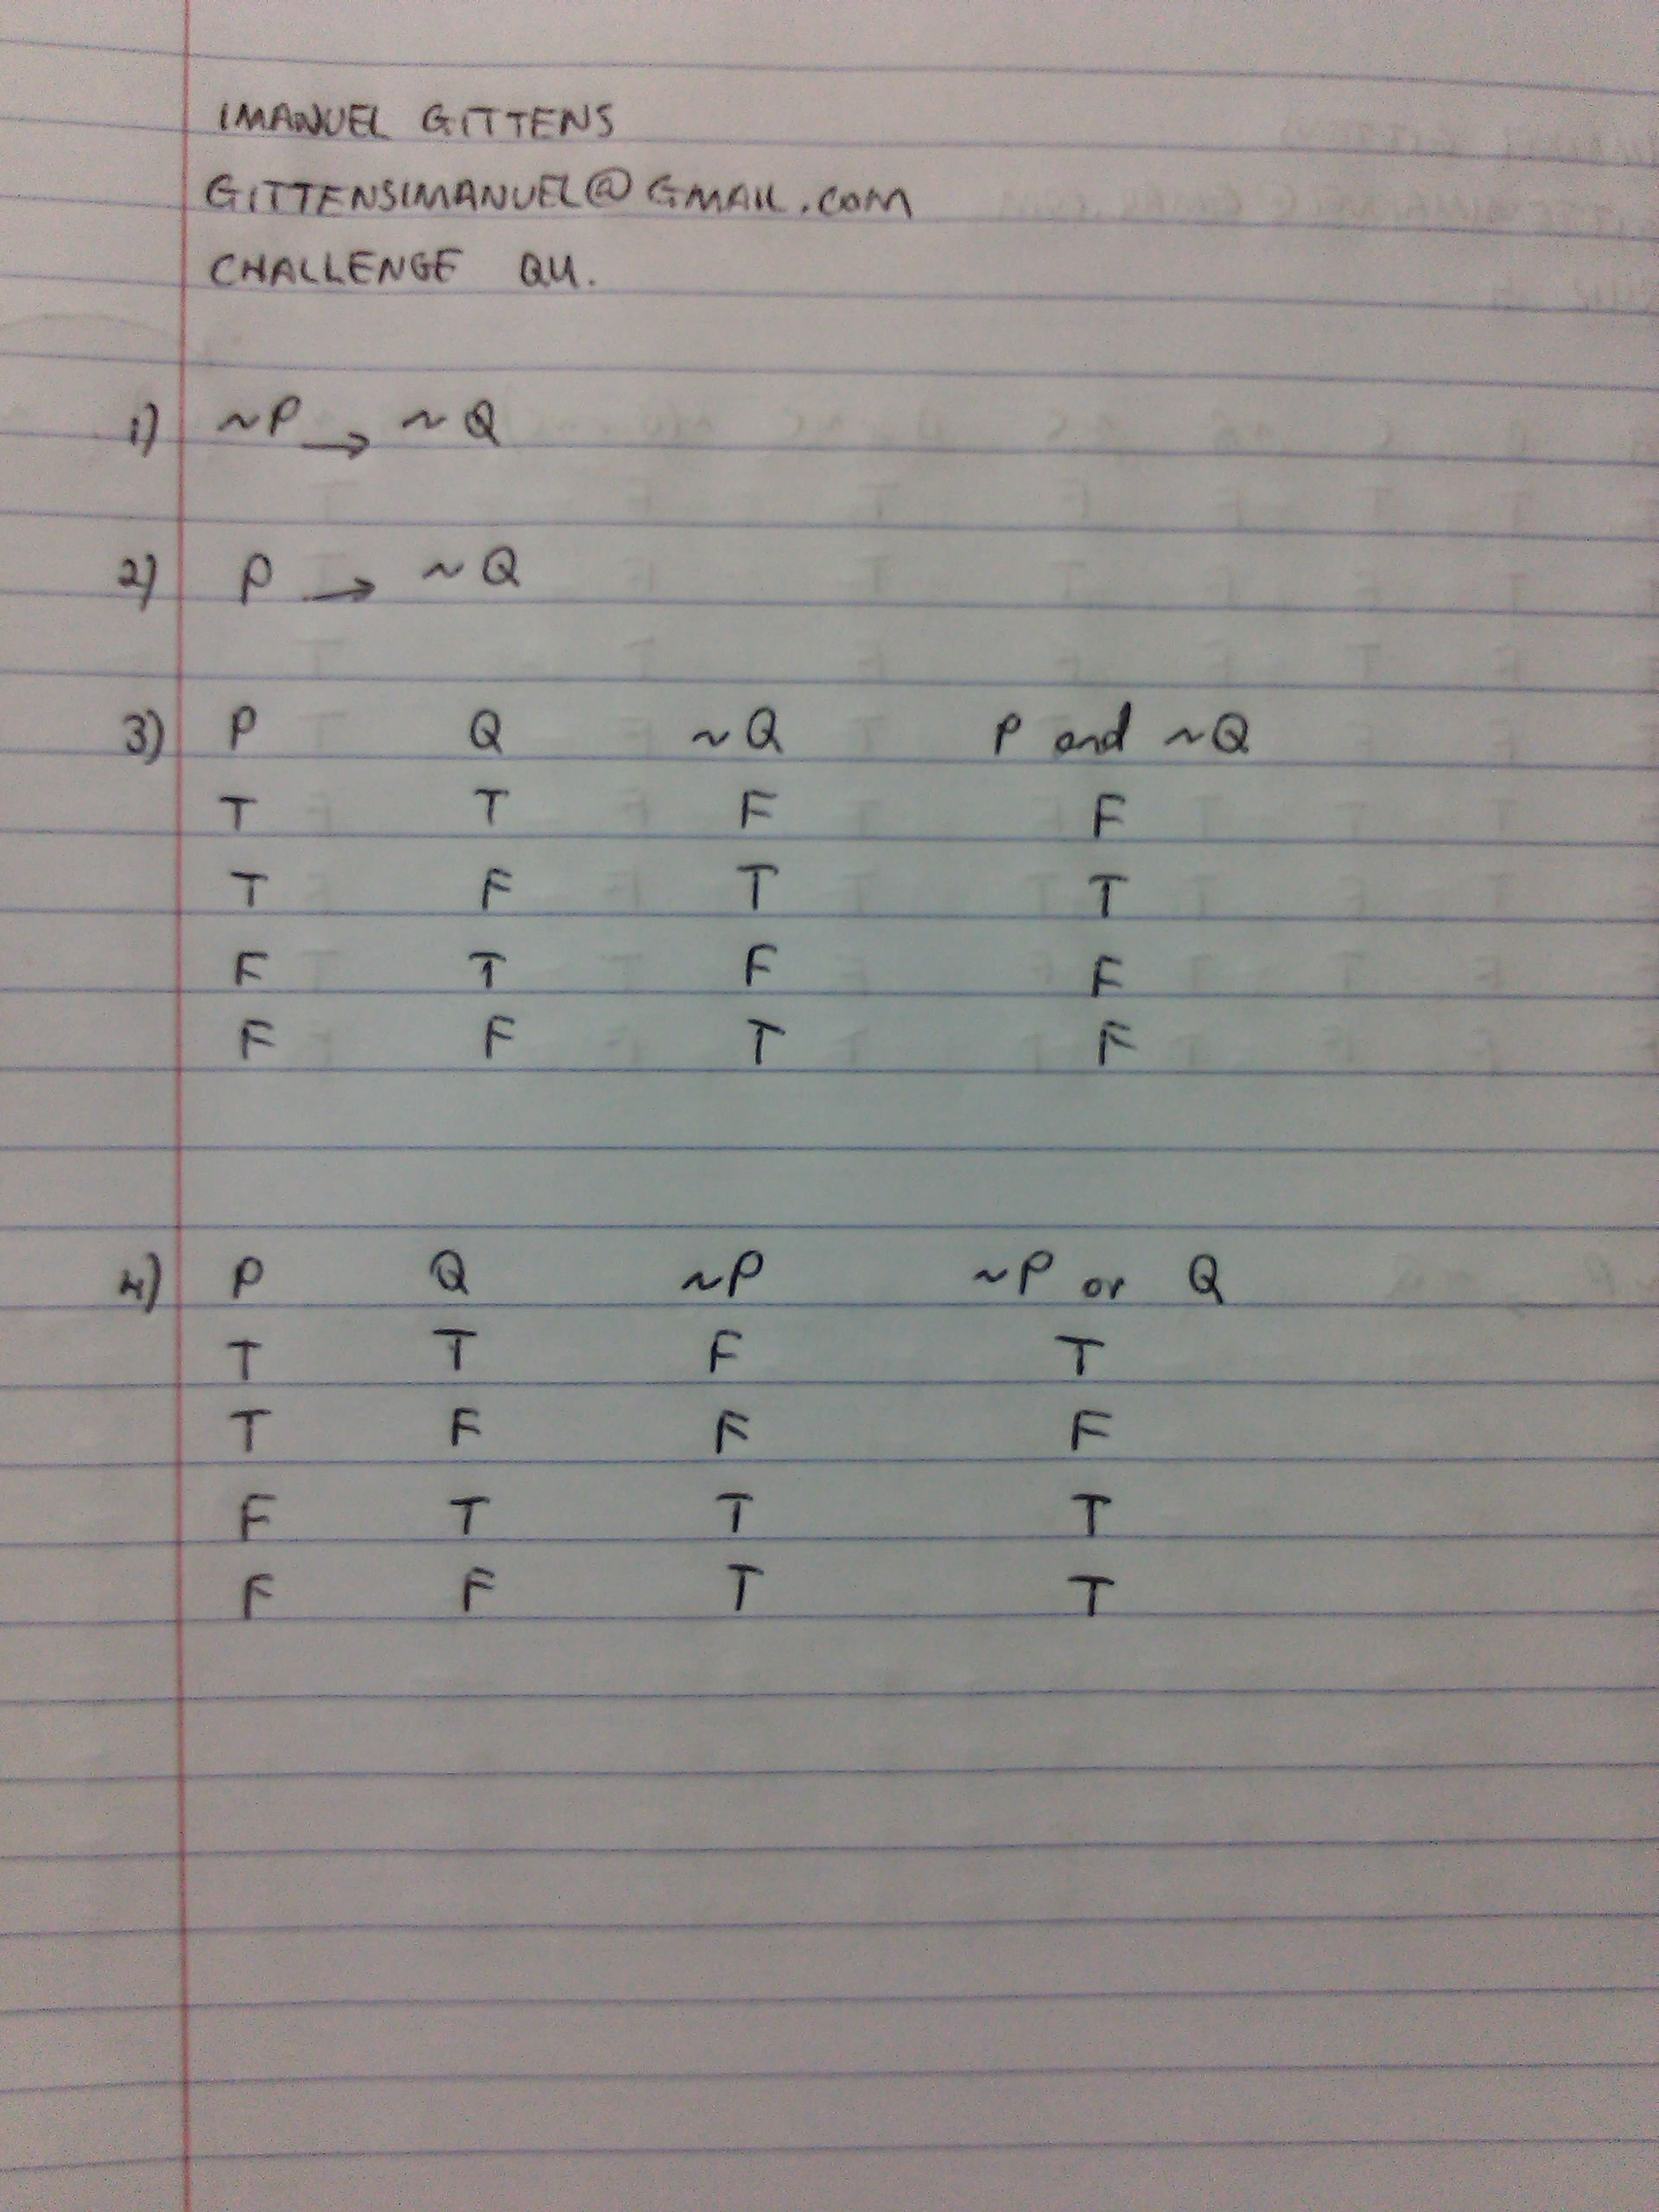 IMANUEL GITTENS
GITTENSIMANUEL@GMAIL.COM
CHALLENGE QU.
1) ~P → ~Q
2) P → ~Q
3) P Q ~Q P and ~Q
T T F F
T F T T
F T F F
F F T F
4) P Q ~P ~P or Q
T T F T
T F F F
F T T T
F F T T